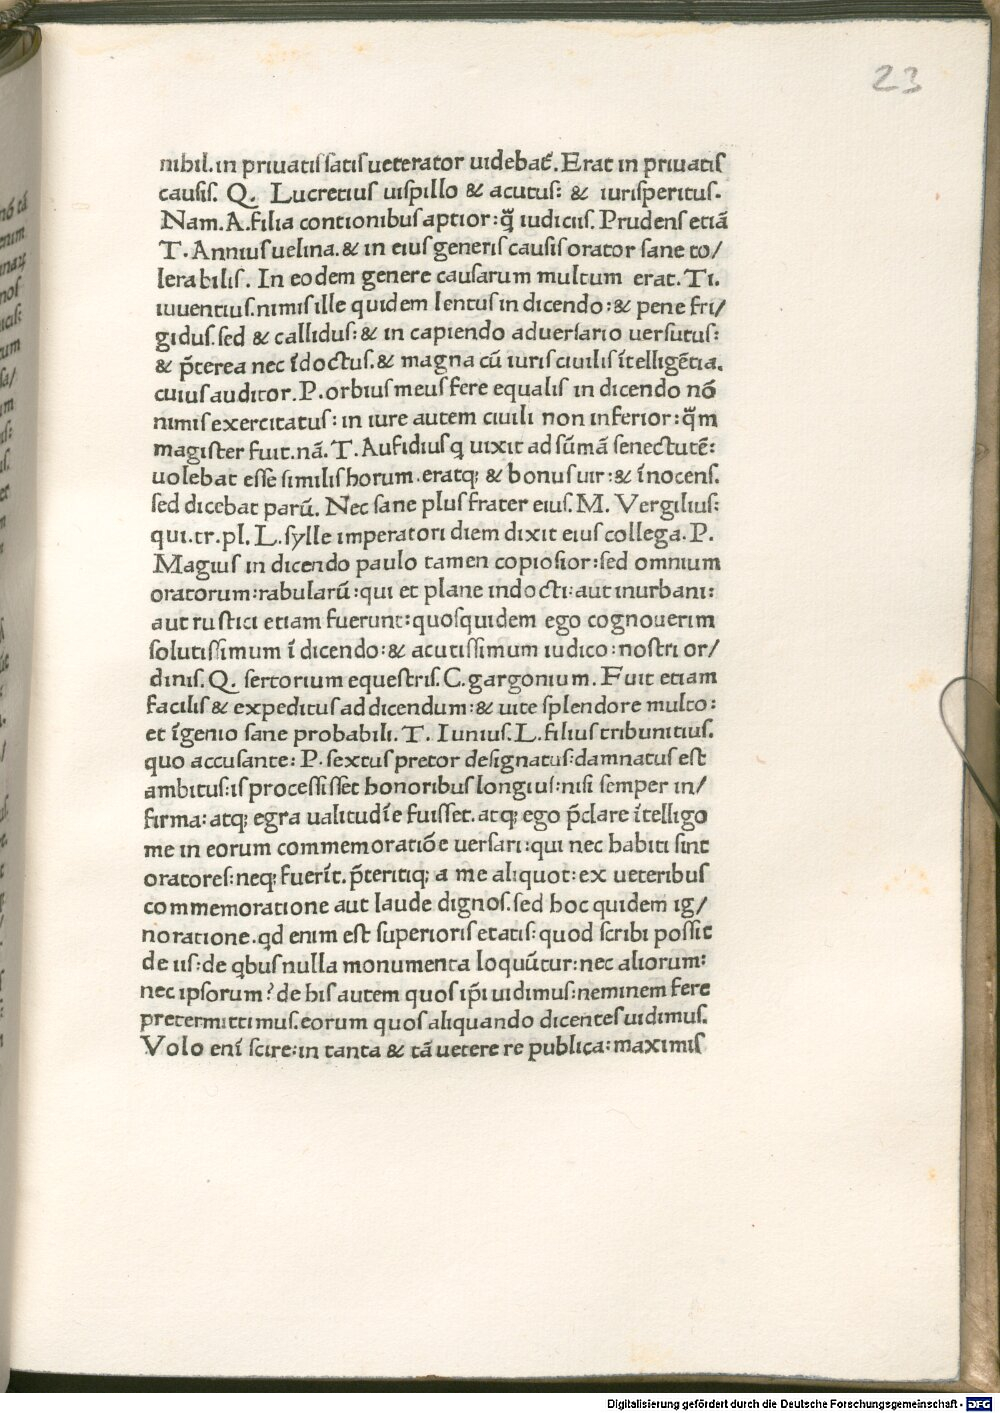 23
nihil. in priuatiſ ſatiſ ueterator uidebat̄. Erat in priuatiſ
cauſiſ. Q. Lucretiuſ uiſpillo & acutuſ: & iuriſperituſ.
Nam. A. filia contionibuſ aptior: q̄ȝ iudiciiſ. Prudenſ etiā
T. Anniuſ uelina. & in eiuſ generiſ cauſiſ orator ſane to/
lerabiliſ. In eodem genere cauſarum multum erat. Ti.
iuuentiuſ. nimiſ ille quidem lentuſ in dicendo: & pene fri/
giduſ. ſed & calliduſ: & in capiendo aduerſario uerſutuſ:
& p̄terea nec īdoctuſ. & magna cū iuriſ ciuiliſ ītelligētia.
cuiuſ auditor. P. orbiuſ meuſ fere equaliſ in dicendo nō
nimiſ exercitatuſ: in iure autem ciuili non inferior: q̄m
magiſter fuit. nā. T. Aufidiuſ q uixit ad ſūmā ſenectutē:
uolebat eſſe ſimiliſ horum. eratq; & bonuſ uir: & īnocenſ.
ſed dicebat parū. Nec ſane pluſ frater eiuſ. M. Vergiliuſ:
qui. tr. pl. L. ſylle imperatori diem dixit eiuſ collega. P.
Magiuſ in dicendo paulo tamen copioſior: ſed omnium
oratorum: rabularū: qui et plane indocti: aut inurbani:
aut ruſtici etiam fuerunt: quoſ quidem ego cognouerim
ſolutiſſimum ī dicendo: & acutiſſimum iudico: noſtri or/
diniſ. Q. ſertorium equeſtriſ. C. gargonium. Fuit etiam
faciliſ & expedituſ ad dicendum: & uite ſplendore multo:
et īgenio ſane probabili. T. Iuniuſ. L. filiuſ tribunitiuſ.
quo accuſante: P. ſextuſ pretor deſignatuſ: damnatuſ eſt
ambituſ: iſ proceſſiſſet honoribuſ longiuſ: niſi ſemper in/
firma: atq; egra ualitudīe fuiſſet. atq; ego p̄clare ītelligo
me in eorum commemoratiōe uerſari: qui nec habiti ſint
oratoreſ: neq; fuerīt. p̄teritiq; a me aliquot: ex ueteribuſ
commemoratione aut laude dignoſ. ſed hoc quidem ig/
noratione. qd enim eſt ſuperioriſ etatiſ: quod ſcribi poſſit
de iiſ: de qbuſ nulla monumenta loquūtur: nec aliorum:
nec ipſorum? de hiſ autem quoſ ip̄i uidimuſ: neminem fere
pretermittimuſ. eorum quoſ aliquando dicenteſ uidimuſ.
Volo enī ſcire: in tanta & tā uetere re publica: maximiſ
Digitalisierung gefördert durch die Deutsche Forschungsgemeinschaft - DFG